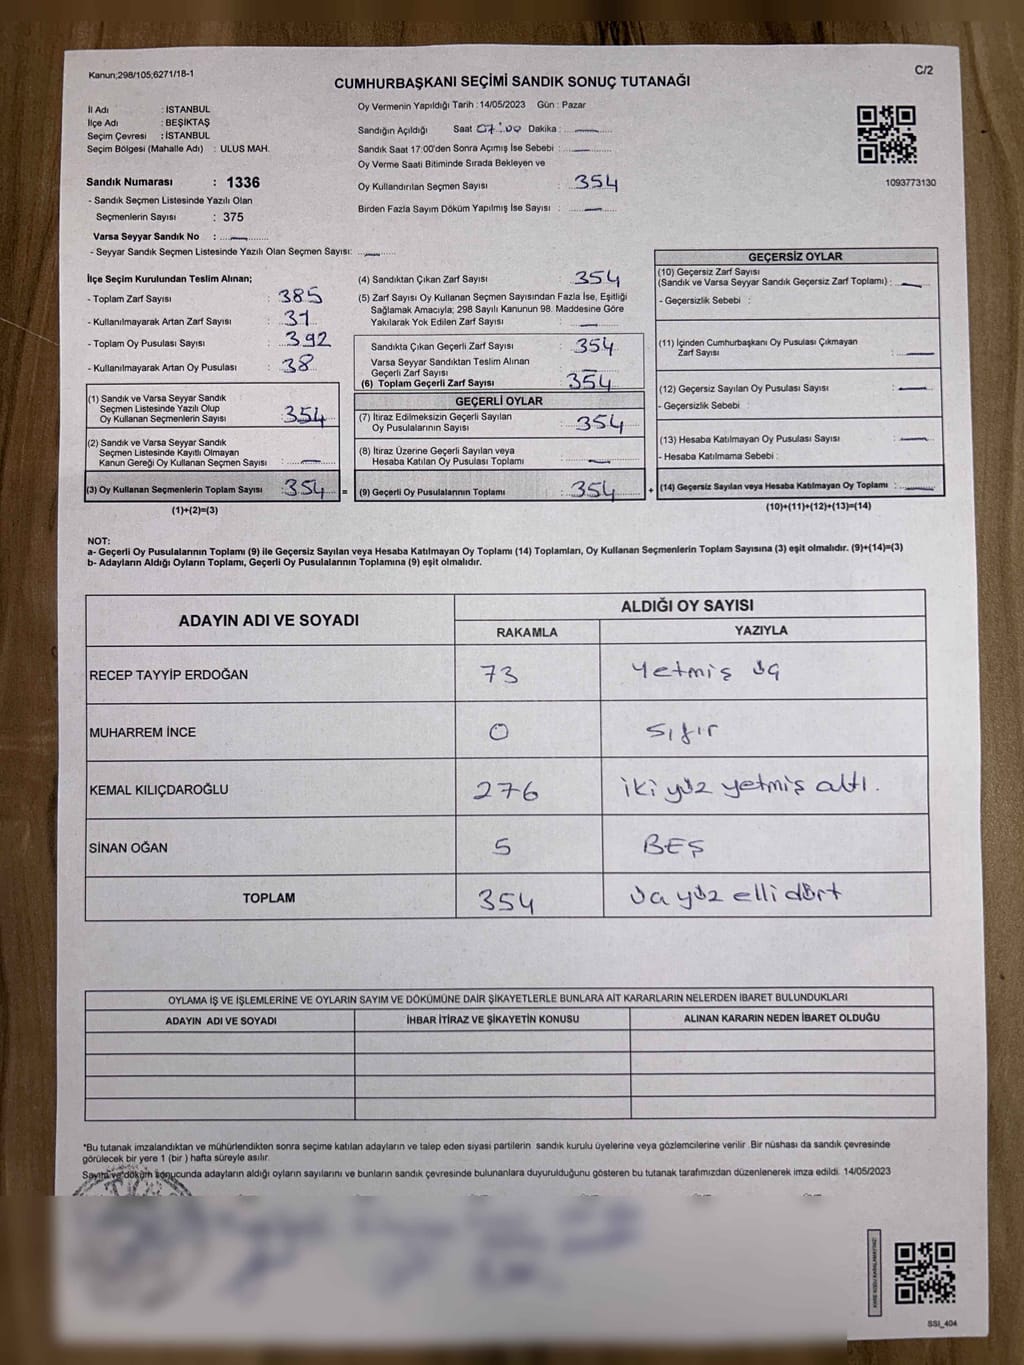 Kanun;298/105;6271/18-1
C/2
CUMHURBAŞKANI SEÇİMİ SANDIK SONUÇ TUTANAĞI
İl Adı : İSTANBUL
İlçe Adı : BEŞİKTAŞ
Seçim Çevresi : İSTANBUL
Seçim Bölgesi (Mahalle Adı) : ULUS MAH.
Sandık Numarası : 1336
- Sandık Seçmen Listesinde Yazılı Olan
Seçmenlerin Sayısı : 375
Varsa Seyyar Sandık No : —
- Seyyar Sandık Seçmen Listesinde Yazılı Olan Seçmen Sayısı: —
Oy Vermenin Yapıldığı Tarih : 14/05/2023 Gün : Pazar
Sandığın Açıldığı Saat 07:00 Dakika : —
Sandık Saat 17:00'den Sonra Açımış İse Sebebi : —
Oy Verme Saati Bitiminde Sırada Bekleyen ve
Oy Kullandırılan Seçmen Sayısı : 354
Birden Fazla Sayım Döküm Yapılmış İse Sayısı : —
1093773130
İlçe Seçim Kurulundan Teslim Alınan;
- Toplam Zarf Sayısı : 385
- Kullanılmayarak Artan Zarf Sayısı : 31
- Toplam Oy Pusulası Sayısı : 392
- Kullanılmayarak Artan Oy Pusulası : 38
(1) Sandık ve Varsa Seyyar Sandık
Seçmen Listesinde Yazılı Olup
Oy Kullanan Seçmenlerin Sayısı : 354
(2) Sandık ve Varsa Seyyar Sandık
Seçmen Listesinde Kayıtlı Olmayan
Kanun Gereği Oy Kullanan Seçmen Sayısı : —
(3) Oy Kullanan Seçmenlerin Toplam Sayısı : 354 =
(1)+(2)=(3)
(4) Sandıktan Çıkan Zarf Sayısı : 354
(5) Zarf Sayısı Oy Kullanan Seçmen Sayısından Fazla İse, Eşitliği
Sağlamak Amacıyla; 298 Sayılı Kanunun 98. Maddesine Göre
Yakılarak Yok Edilen Zarf Sayısı : —
Sandıkta Çıkan Geçerli Zarf Sayısı : 354
Varsa Seyyar Sandıktan Teslim Alınan
Geçerli Zarf Sayısı : —
(6) Toplam Geçerli Zarf Sayısı : 354
GEÇERLİ OYLAR
(7) İtiraz Edilmeksizin Geçerli Sayılan
Oy Pusulalarının Sayısı : 354
(8) İtiraz Üzerine Geçerli Sayılan veya
Hesaba Katılan Oy Pusulası Toplamı : —
(9) Geçerli Oy Pusulalarının Toplamı : 354 +
GEÇERSİZ OYLAR
(10) Geçersiz Zarf Sayısı
(Sandık ve Varsa Seyyar Sandık Geçersiz Zarf Toplamı) : —
- Geçersizlik Sebebi :
(11) İçinden Cumhurbaşkanı Oy Pusulası Çıkmayan
Zarf Sayısı : —
(12) Geçersiz Sayılan Oy Pusulası Sayısı : —
- Geçersizlik Sebebi :
(13) Hesaba Katılmayan Oy Pusulası Sayısı : —
- Hesaba Katılmama Sebebi :
(14) Geçersiz Sayılan veya Hesaba Katılmayan Oy Toplamı : —
(10)+(11)+(12)+(13)=(14)
NOT:
a- Geçerli Oy Pusulalarının Toplamı (9) ile Geçersiz Sayılan veya Hesaba Katılmayan Oy Toplamı (14) Toplamları, Oy Kullanan Seçmenlerin Toplam Sayısına (3) eşit olmalıdır. (9)+(14)=(3)
b- Adayların Aldığı Oyların Toplamı, Geçerli Oy Pusulalarının Toplamına (9) eşit olmalıdır.
ADAYIN ADI VE SOYADI ALDIĞI OY SAYISI
RAKAMLA YAZIYLA
RECEP TAYYİP ERDOĞAN 73 Yetmiş üç
MUHARREM İNCE 0 Sıfır
KEMAL KILIÇDAROĞLU 276 iki yüz yetmiş altı.
SİNAN OĞAN 5 BEŞ
TOPLAM 354 üç yüz elli dört
OYLAMA İŞ VE İŞLEMLERİNE VE OYLARIN SAYIM VE DÖKÜMÜNE DAİR ŞİKAYETLERLE BUNLARA AİT KARARLARIN NELERDEN İBARET BULUNDUKLARI
ADAYIN ADI VE SOYADI İHBAR İTİRAZ VE ŞİKAYETİN KONUSU ALINAN KARARIN NEDEN İBARET OLDUĞU
*Bu tutanak imzalandıktan ve mühürlendikten sonra seçime katılan adayların ve talep eden siyasi partilerin sandık kurulu üyelerine veya gözlemcilerine verilir. Bir nüshası da sandık çevresinde
görülecek bir yere 1 (bir ) hafta süreyle asılır.
Sayım ve döküm sonucunda adayların aldığı oyların sayılarını ve bunların sandık çevresinde bulunanlara duyurulduğunu gösteren bu tutanak tarafımızdan düzenlenerek imza edildi. 14/05/2023
SSI_404